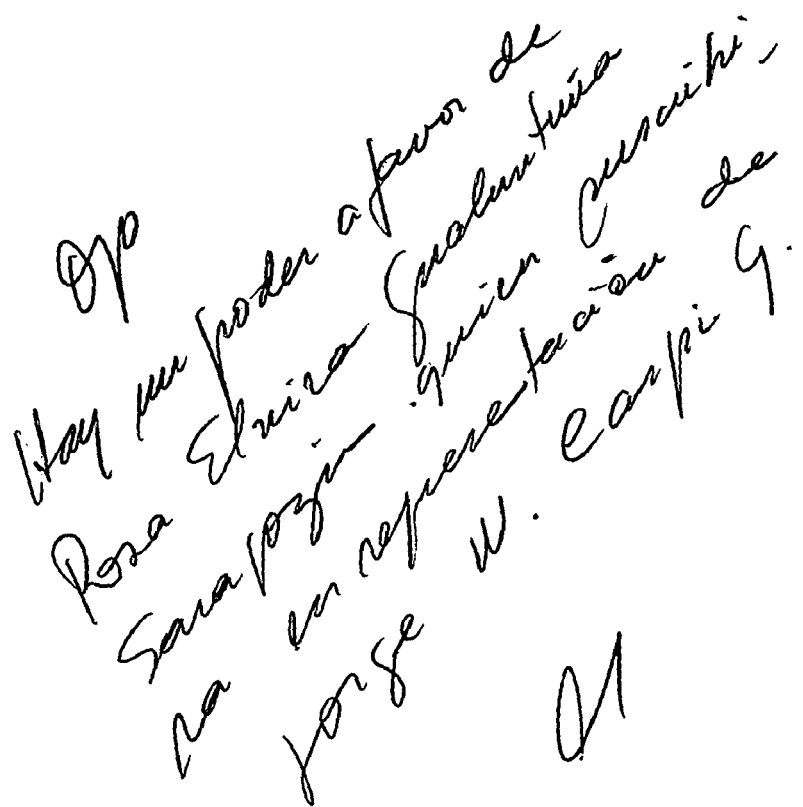 Ojo
Hay un poder a favor de
Rosa Elvira Gualuntuña
Sarapozin quien suscribi-
ra en representación de
Jorge W. Carpi G.